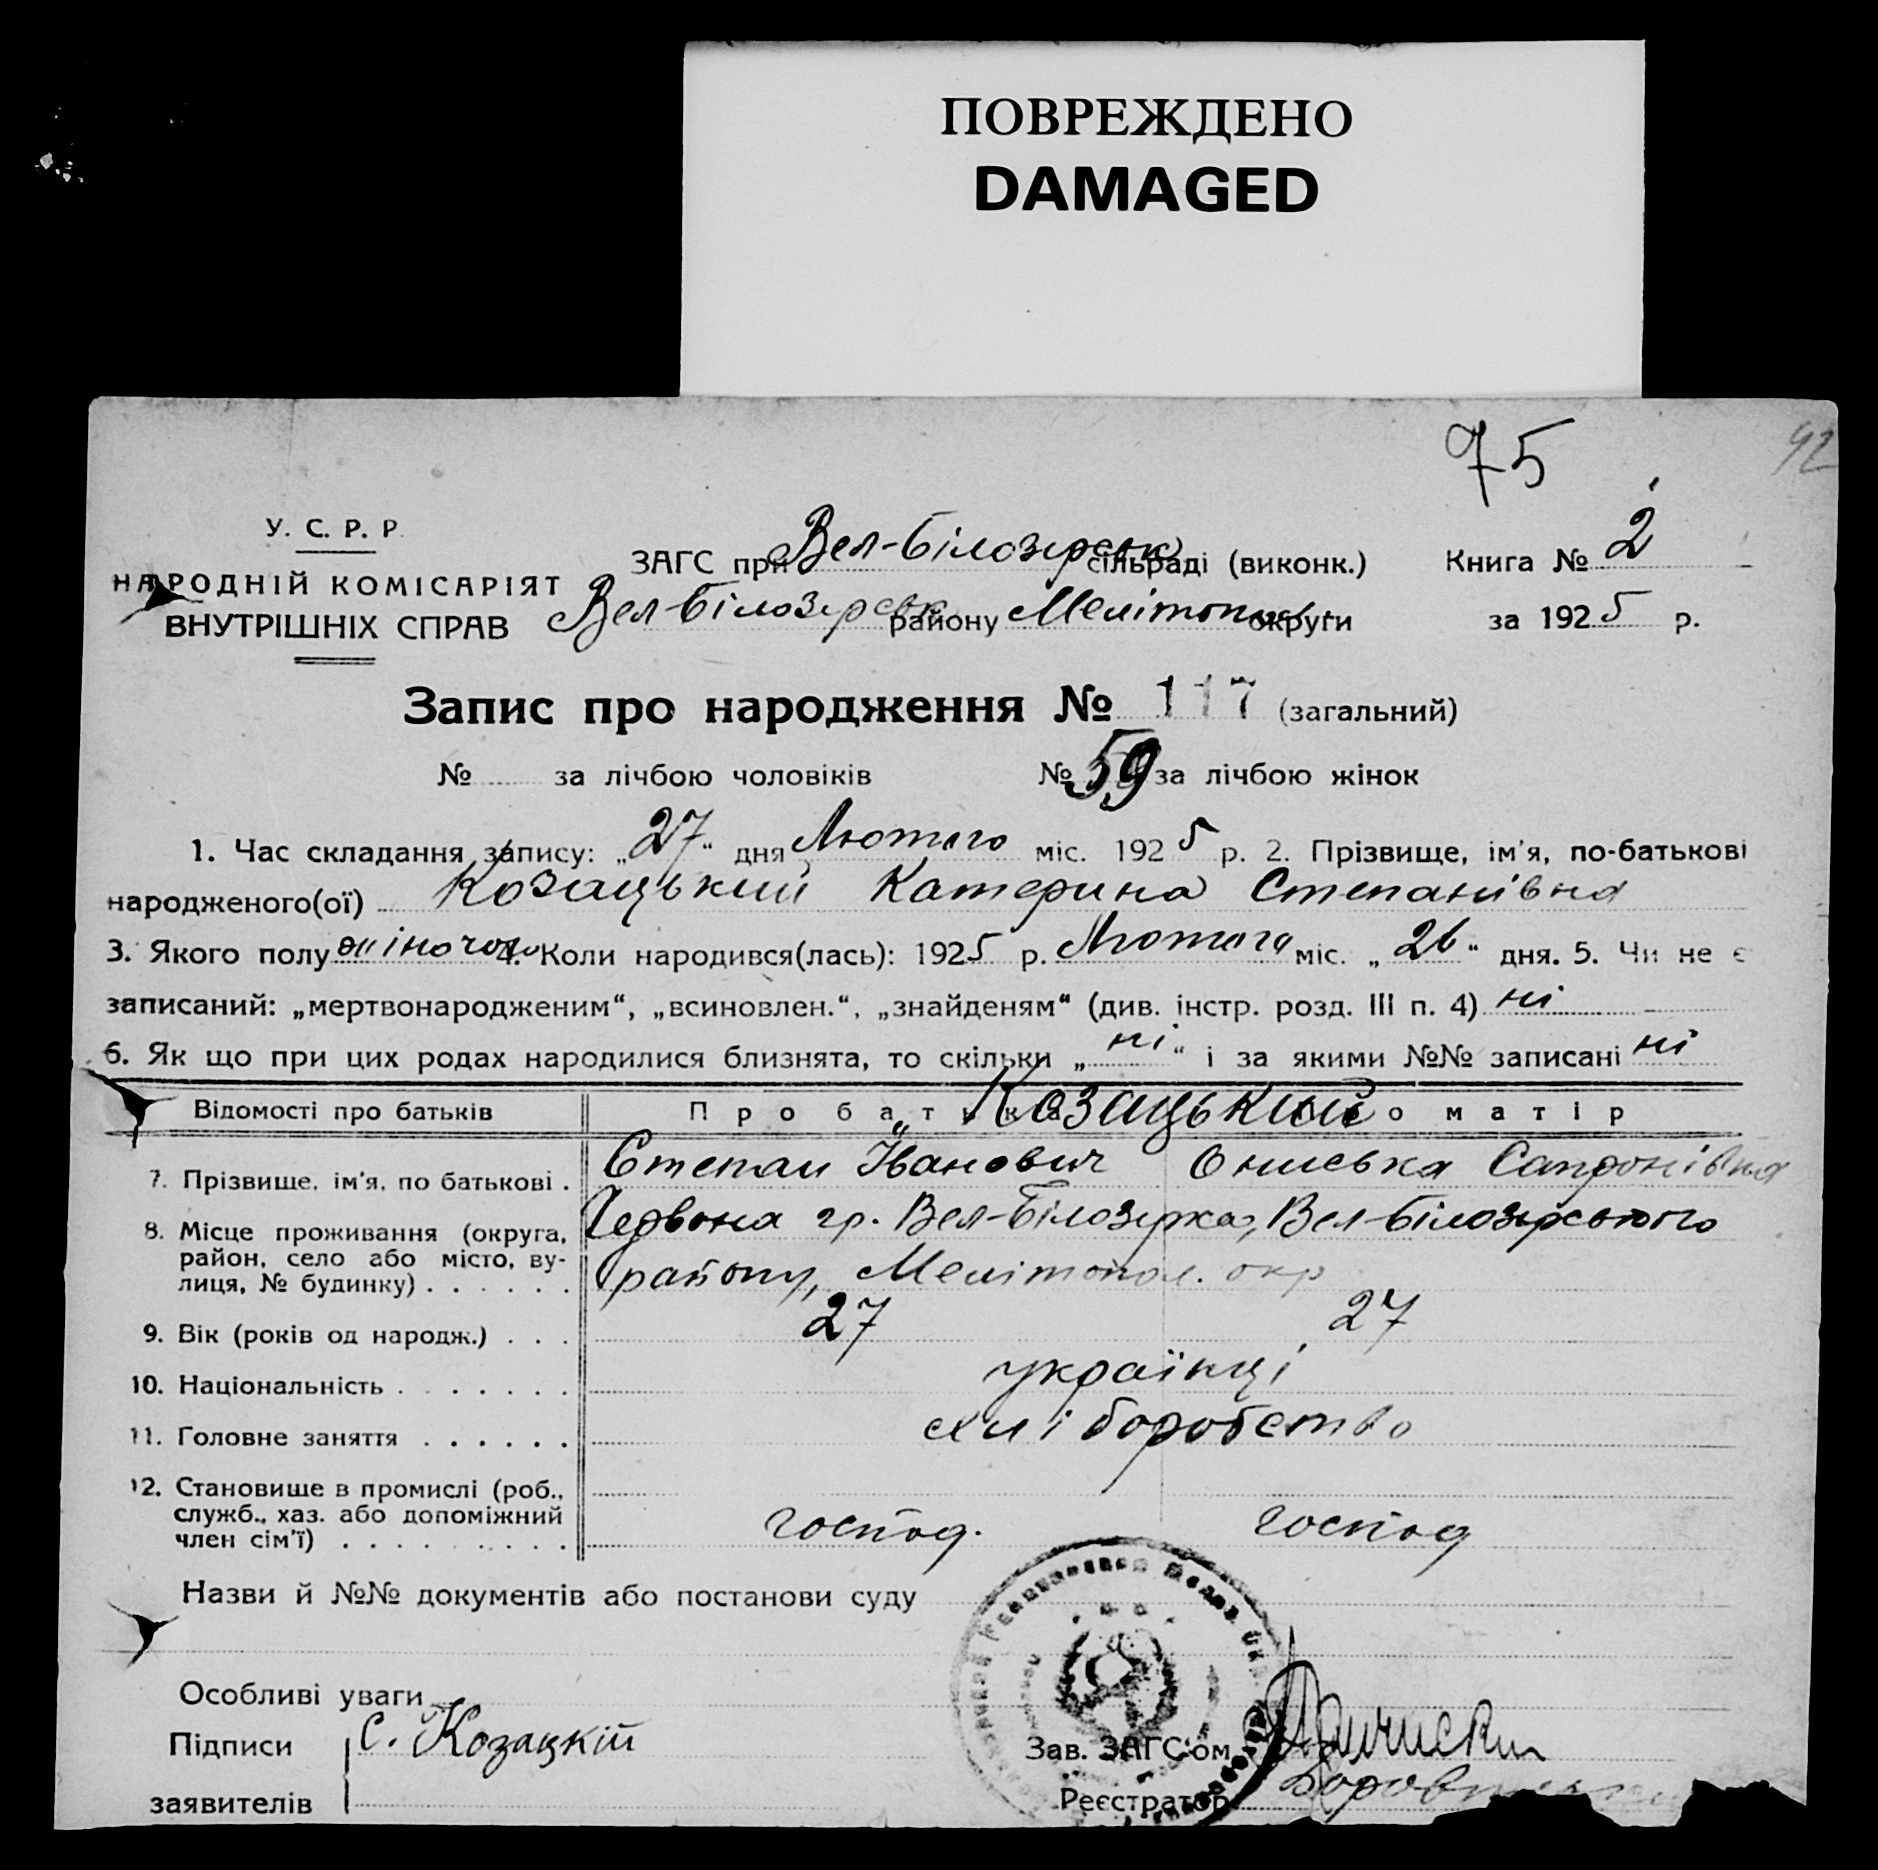 ПОВРЕЖДЕНО
DAMAGED
75
92
У. С. Р. Р.
НАРОДНІЙ КОМІСАРІЯТ
ВНУТРІШНІХ СПРАВ
ЗАГС при Вел-Білозерськ сільраді (виконк.) Книга № 2
Вел-Білозерськ району Мелітополь округи за 1925 р.
Запис про народження № 117 (загальний)
№ за лічбою чоловіків № 59 за лічбою жінок
1. Час складання запису: „27“ дня Лютого міс. 1925 р. 2. Прізвище, ім'я, по-батькові
народженого(ої) Козацький Катерина Степанівна
3. Якого полу жіночого 4. Коли народився(лась): 1925 р. Лютого міс. „26“ дня. 5. Чи не є
записаний: „мертвонародженим“, „всиновлен.“, „знайденям“ (див. інстр. розд. III п. 4) ні
6. Як що при цих родах народилися близнята, то скільки „ні“ і за якими №№ записані ні
Відомості про батьків Про батька Козацький Про матір
7. Прізвище, ім'я, по батькові . Степан Іванович Ониська Сапронівна
8. Місце проживання (округа, Червона гр. Вел-Білозерка, Вел-Білозерського
район, село або місто, ву-
лиця, № будинку) . . . . . . району, Мелітопол. окр
9. Вік (років од народж.) . . . 27 27
10. Національність . . . . . . . українці
11. Головне заняття . . . . . . хліборобство
12. Становище в промислі (роб.,
служб., хаз. або допоміжний
член сім'ї) . . . . . . . . . господ. господ
Назви й №№ документів або постанови суду
Особливі уваги
Підписи С. Козацкій
Зав. ЗАГС'ом
заявителів
Реєстратор